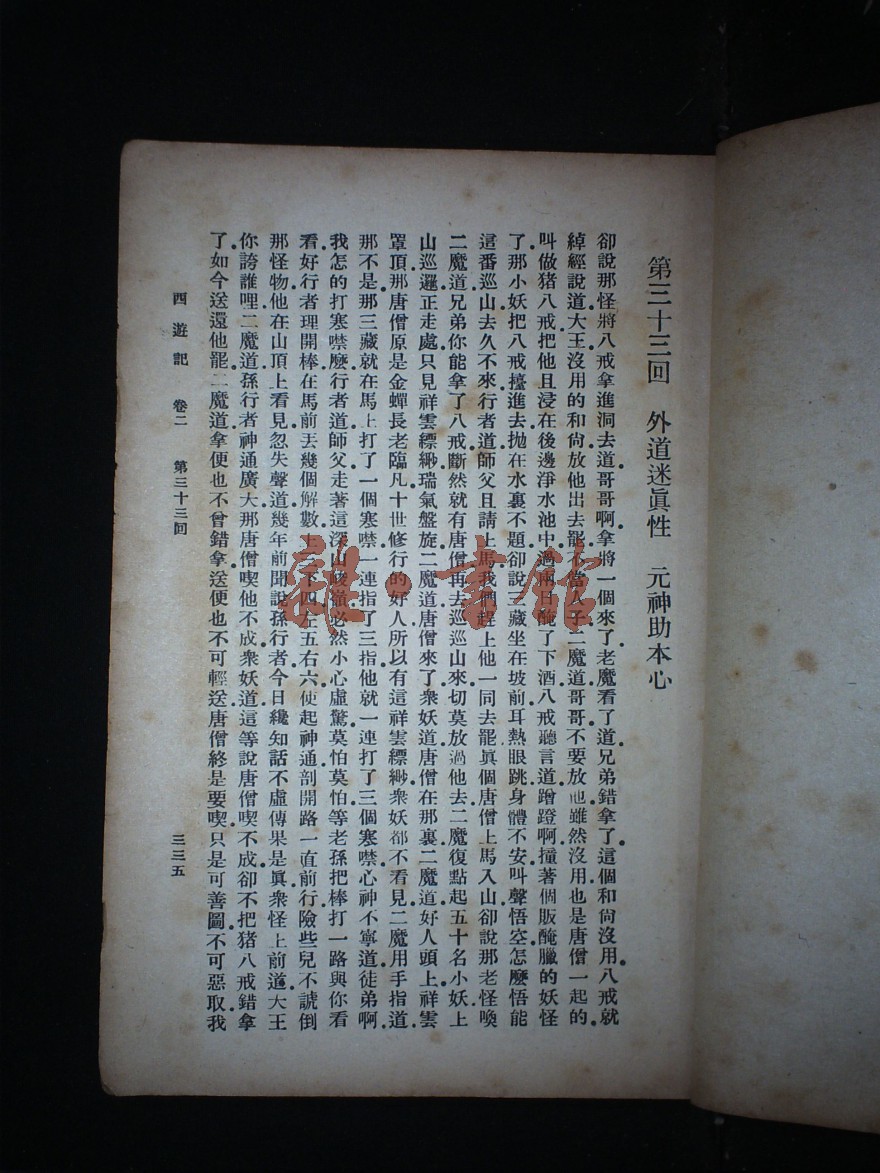 第三十三回　外道迷眞性　元神助本心
卻說那怪將八戒拿進洞去道哥哥啊拿將一個來了老魔看了道兄弟錯拿了這個和尙沒用八戒就
綽經說道大王沒用的和尙放他出去罷不當人子二魔道哥哥不要放他雖然沒用也是唐僧一起的
叫做猪八戒把他且浸在後邊淨水池中過兩日醃了下酒八戒聽言道蹭蹬啊撞著個販醃臘的妖怪
了那小妖把八戒擡進去拋在水裏不題卻說三藏坐在坡前耳熱眼跳身體不安叫聲悟空怎麼悟能
這番巡山去久不來行者道師父且請上馬我們趕上他一同去罷眞個唐僧上馬入山卻說那老怪喚
二魔道兄弟你能拿了八戒斷然就有唐僧再去巡巡山來切莫放過他去二魔復點起五十名小妖上
山巡邏正走處只見祥雲縹緲瑞氣盤旋二魔道唐僧來了衆妖道唐僧在那裏二魔道好人頭上祥雲
罩頂那唐僧原是金蟬長老臨凡十世修行的好人所以有這祥雲縹緲衆妖都不看見二魔用手指道
那不是那三藏就在馬上打了一個寒噤一連指了三指他就一連打了三個寒噤心神不寧道徒弟啊
我怎的打寒噤麼行者道師父走著這深山峻嶺必然小心虛驚莫怕莫怕等老孫把棒打一路與你看
看好行者理開棒在馬前丟幾個解數上下四左五右六使起神通剖開路一直前行險些兒不諕倒
那怪物他在山頂上看見忽失聲道幾年前聞說孫行者今日纔知話不虛傳果是眞衆怪上前道大王
你誇誰哩二魔道孫行者神通廣大那唐僧喫他不成衆妖道這等說唐僧喫不成卻不把猪八戒錯拿
了如今送還他罷二魔道拿便也不曾錯拿送便也不可輕送唐僧終是要喫只是可善圖不可惡取我
西遊記　卷二　第三十三回　三三五
雜·書館